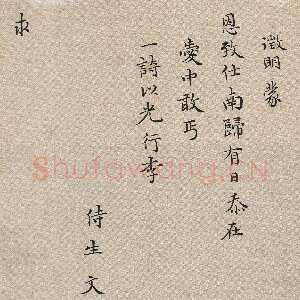 徵明蒙
恩致仕南歸有日忝在
愛中敢丐
一詩以光行李
侍生文
求
Shufawang.CN